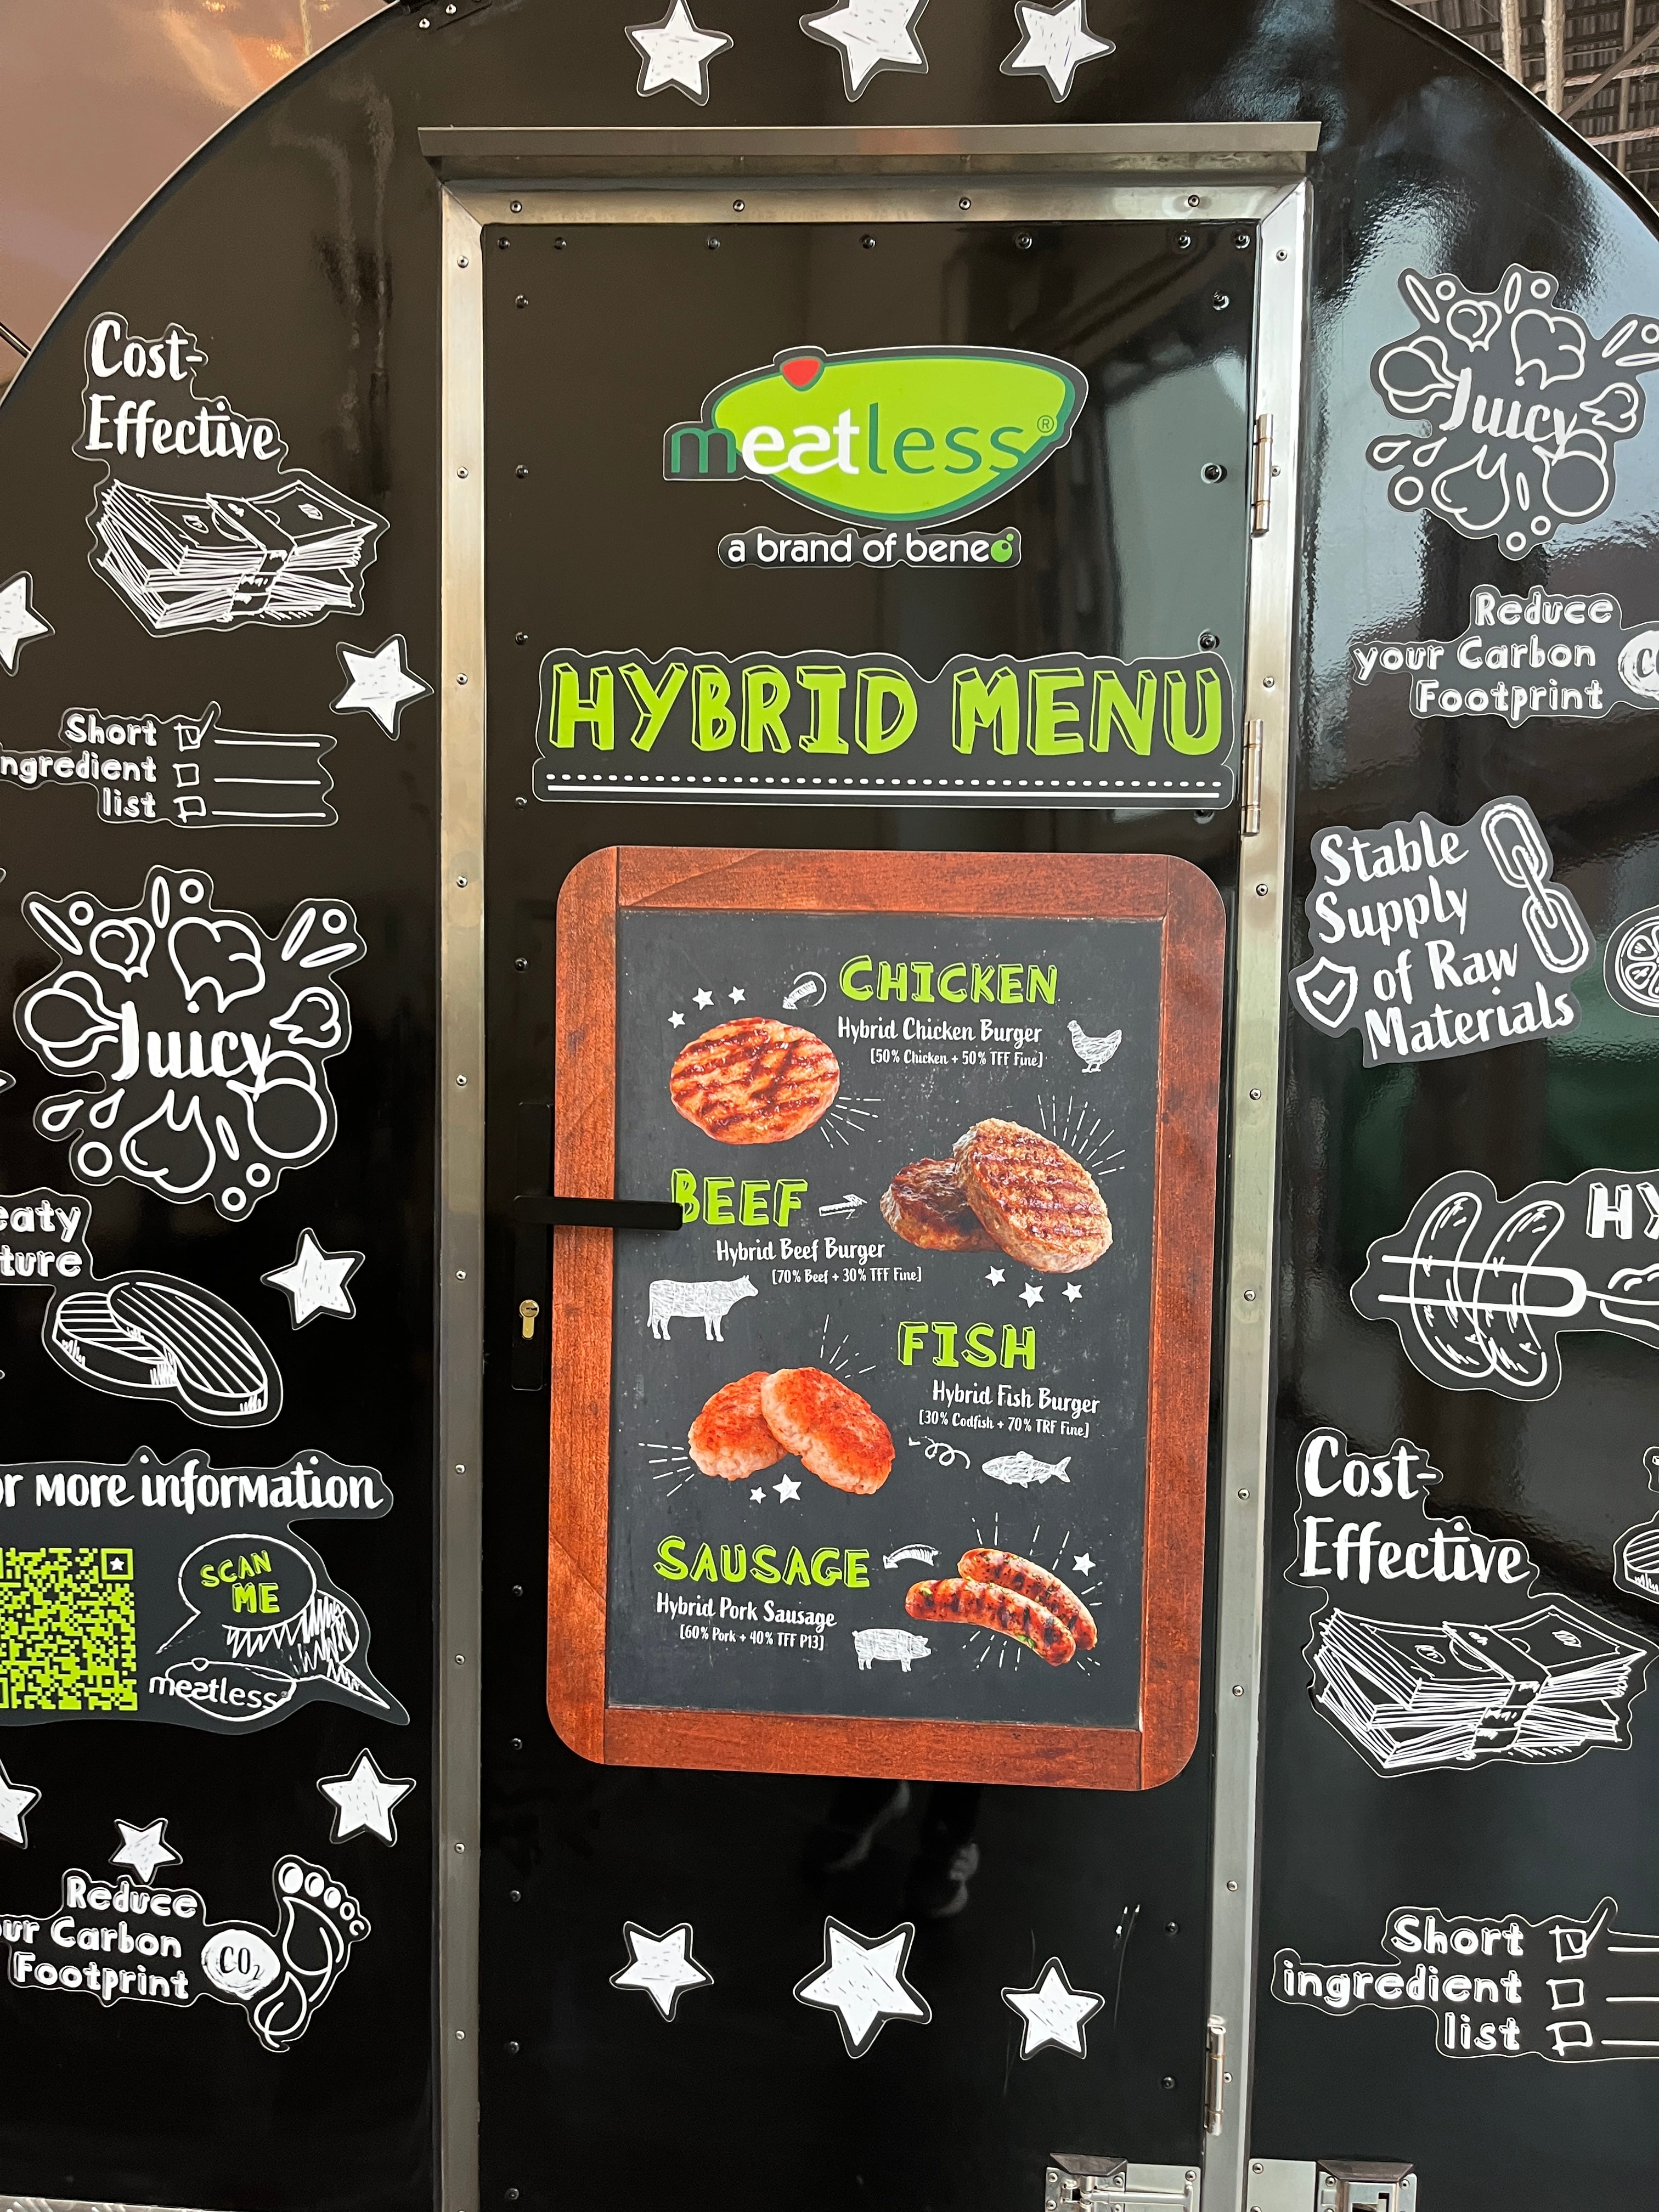 Cost-
Effective
Short
ingredient
list
Juicy
for more information
SCAN
ME
meatless
Reduce
your Carbon
Footprint
CO2
meatless®
a brand of beneo
HYBRID MENU
CHICKEN
Hybrid Chicken Burger
[50% Chicken + 50% TFF Fine]
BEEF
Hybrid Beef Burger
[70% Beef + 30% TFF Fine]
FISH
Hybrid Fish Burger
[30% Codfish + 70% TRF Fine]
SAUSAGE
Hybrid Pork Sausage
[60% Pork + 40% TFF P13]
Juicy
Reduce
your Carbon
Footprint
Stable
Supply
of Raw
Materials
HY
Cost-
Effective
Short
ingredient
list